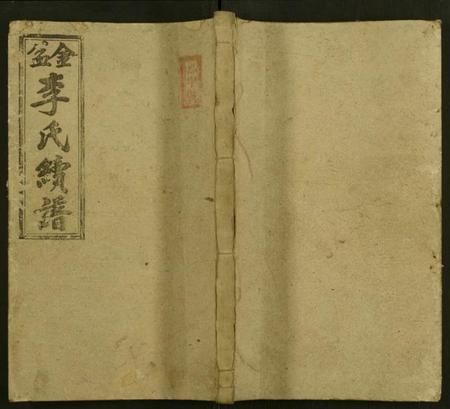 金盆
李氏續譜